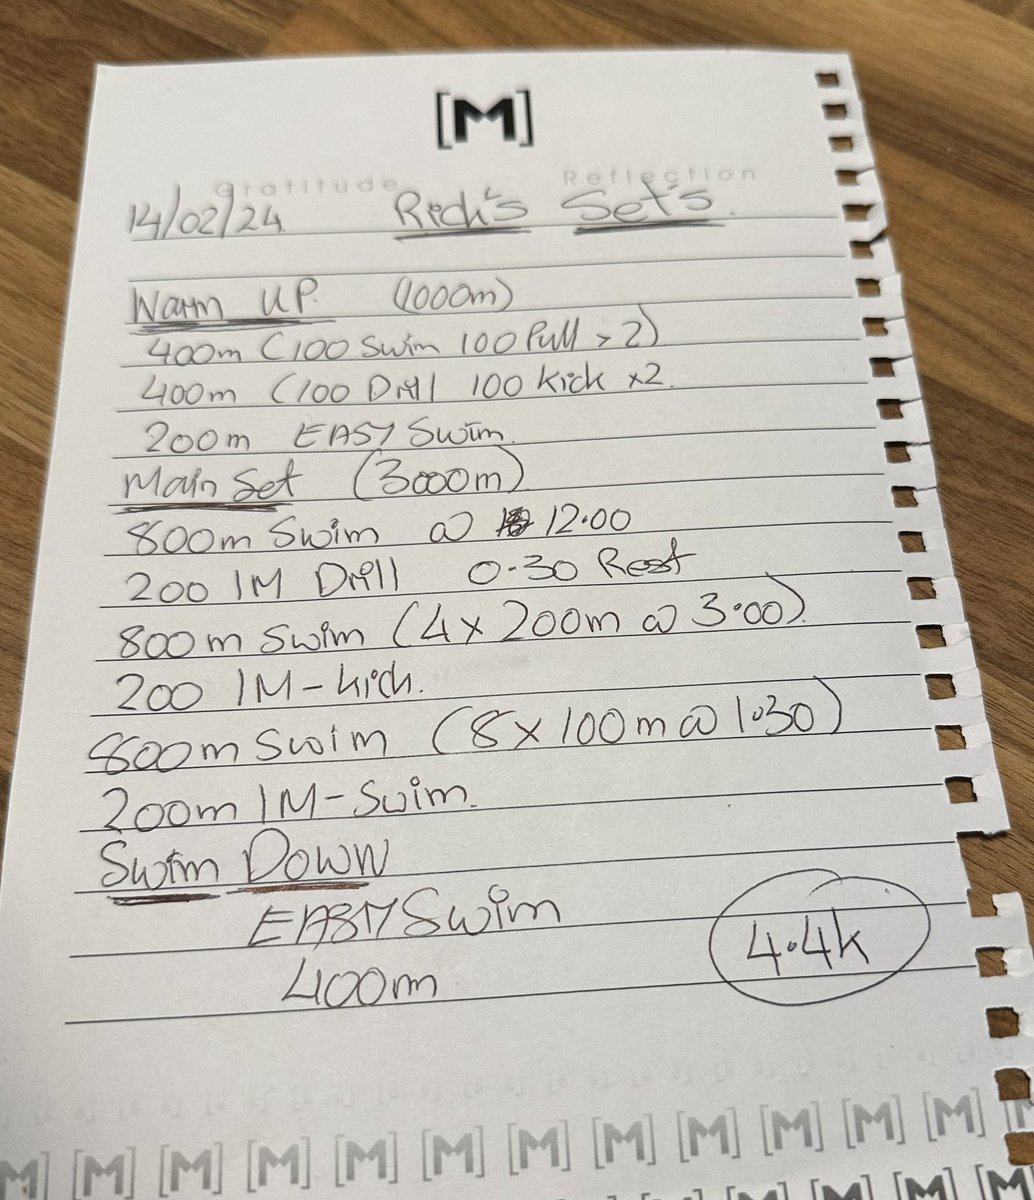 [M]
gratitude Reflection
14/02/24 Rich's Set's.
Warm UP. (1000m)
400m (100 Swim 100 Pull x 2)
400m (100 Drill 100 kick x2.
200m EASY Swim.
Main Set (3000m)
800m Swim @ 12.00
200 IM Drill 0.30 Rest
800m Swim (4x 200m @ 3.00).
200 IM - kick.
800m Swim (8x100m @ 1.30)
200m IM - Swim.
Swim Down
EASY Swim
4.4k
400m
[M] [M] [M] [M] [M] [M] [M] [M] [M] [M] [M] [M]
[M] [M] [M] [M]